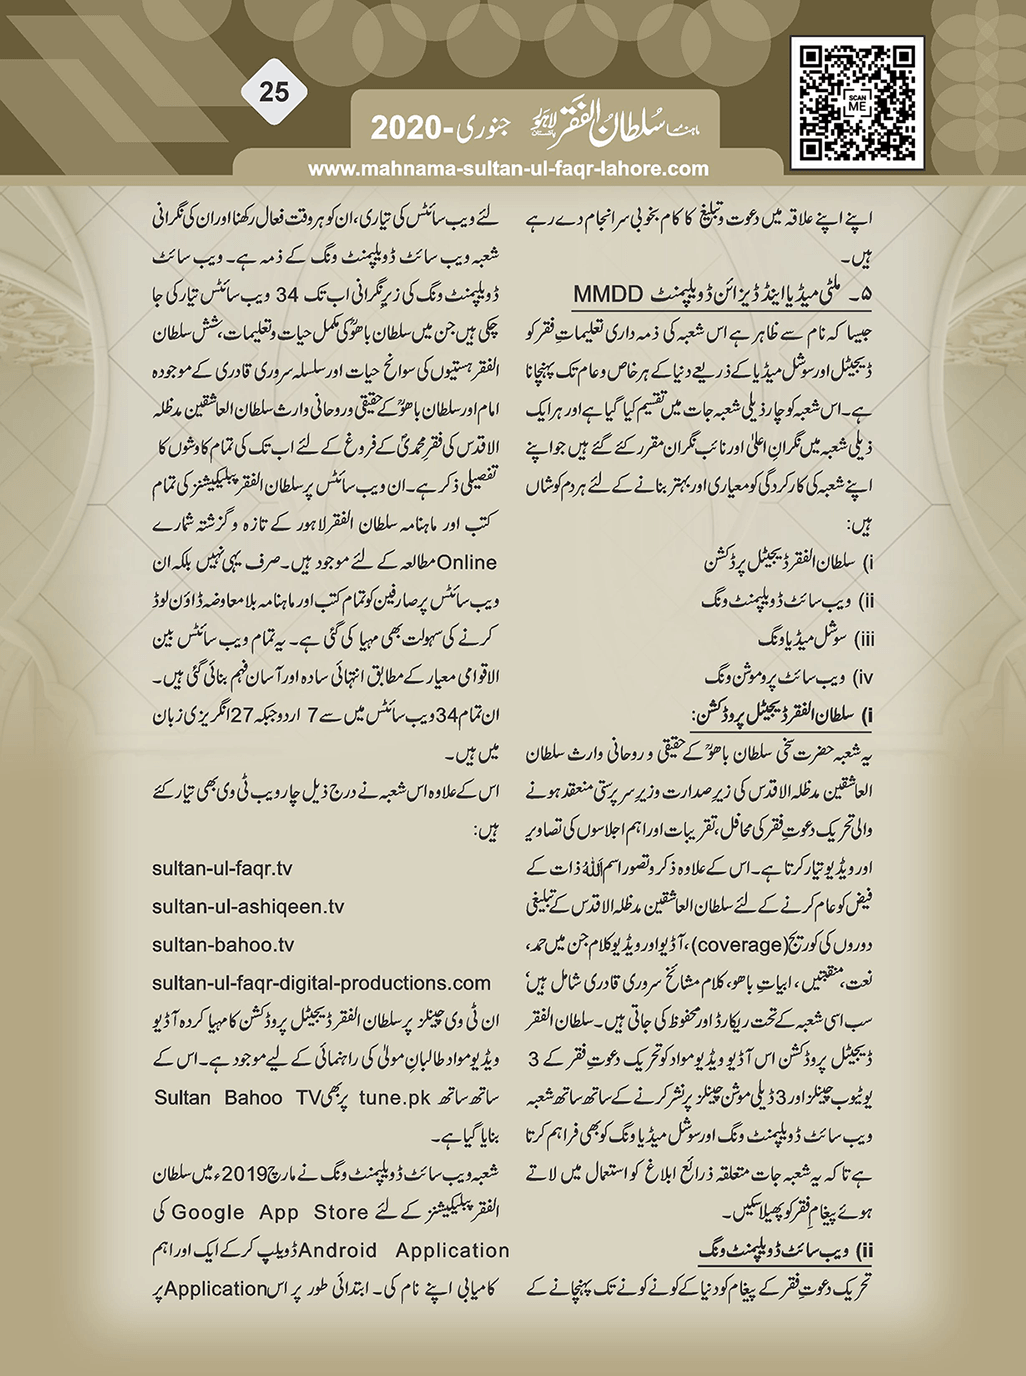 25
ماہنامہ سلطان الفقر لاہور پاکستان جنوری-2020
SCAN ME
www.mahnama-sultan-ul-faqr-lahore.com
اپنے اپنے علاقہ میں دعوت و تبلیغ کا کام بخوبی سرانجام دے رہے
ہیں۔
۵۔ ملٹی میڈیا اینڈ ڈیزائن ڈویلپمنٹ MMDD
جیسا کہ نام سے ظاہر ہے اس شعبہ کی ذمہ داری تعلیماتِ فقر کو
ڈیجیٹل اور سوشل میڈیا کے ذریعے دنیا کے ہر خاص و عام تک پہنچانا
ہے۔ اس شعبہ کو چار ذیلی شعبہ جات میں تقسیم کیا گیا ہے اور ہر ایک
ذیلی شعبہ میں نگرانِ اعلیٰ اور نائب نگران مقرر کئے گئے ہیں جو اپنے
اپنے شعبہ کی کارکردگی کو معیاری اور بہتر بنانے کے لئے ہردم کوشاں
ہیں:
i) سلطان الفقر ڈیجیٹل پرڈکشن
ii) ویب سائٹ ڈویلپمنٹ ونگ
iii) سوشل میڈیا ونگ
iv) ویب سائٹ پروموشن ونگ
i) سلطان الفقر ڈیجیٹل پروڈکشن:
یہ شعبہ حضرت سخی سلطان باھوؒ کے حقیقی و روحانی وارث سلطان
العاشقین مدظلہ الاقدس کی زیرِ صدارت و زیرِ سرپرستی منعقد ہونے
والی تحریک دعوتِ فقر کی محافل، تقریبات اور اہم اجلاسوں کی تصاویر
اور ویڈیو تیار کرتا ہے۔ اس کے علاوہ ذکر و تصور اسم اللہ ذات کے
فیض کو عام کرنے کے لئے سلطان العاشقین مدظلہ الاقدس کے تبلیغی
دوروں کی کوریج (coverage)، آڈیو اور ویڈیو کلام جن میں حمد،
نعت، منقبتیں، ابیاتِ باھو، کلام مشائخ سروری قادری شامل ہیں‘
سب اسی شعبہ کے تحت ریکارڈ اور محفوظ کی جاتی ہیں۔ سلطان الفقر
ڈیجیٹل پروڈکشن اس آڈیو ویڈیو مواد کو تحریک دعوتِ فقر کے 3
یوٹیوب چینلز اور 3 ڈیلی موشن چینلز پر نشر کرنے کے ساتھ ساتھ شعبہ
ویب سائٹ ڈویلپمنٹ ونگ اور سوشل میڈیا ونگ کو بھی فراہم کرتا
ہے تاکہ یہ شعبہ جات متعلقہ ذرائع ابلاغ کو استعمال میں لاتے
ہوئے پیغامِ فقر کو پھیلا سکیں۔
ii) ویب سائٹ ڈویلپمنٹ ونگ
تحریک دعوتِ فقر کے پیغام کو دنیا کے کونے کونے تک پہنچانے کے
لئے ویب سائٹس کی تیاری، ان کو ہر وقت فعال رکھنا اور ان کی نگرانی
شعبہ ویب سائٹ ڈویلپمنٹ ونگ کے ذمہ ہے۔ ویب سائٹ
ڈویلپمنٹ ونگ کی زیرِ نگرانی اب تک 34 ویب سائٹس تیار کی جا
چکی ہیں جن میں سلطان باھوؒ کی مکمل حیات و تعلیمات، شش سلطان
الفقر ہستیوں کی سوانح حیات اور سلسلہ سروری قادری کے موجودہ
امام اور سلطان باھوؒ کے حقیقی و روحانی وارث سلطان العاشقین مدظلہ
الاقدس کی فقرِ محمدیؐ کے فروغ کے لئے اب تک کی تمام کاوشوں کا
تفصیلی ذکر ہے۔ ان ویب سائٹس پر سلطان الفقر پبلیکیشنز کی تمام
کتب اور ماہنامہ سلطان الفقر لاہور کے تازہ و گزشتہ شمارے
Online مطالعہ کے لئے موجود ہیں۔ صرف یہی نہیں بلکہ ان
ویب سائٹس پر صارفین کو تمام کتب اور ماہنامہ بلا معاوضہ ڈاؤن لوڈ
کرنے کی سہولت بھی مہیا کی گئی ہے۔ یہ تمام ویب سائٹس بین
الاقوامی معیار کے مطابق انتہائی سادہ اور آسان فہم بنائی گئی ہیں۔
ان تمام 34 ویب سائٹس میں سے 7 اردو جبکہ 27 انگریزی زبان
میں ہیں۔
اس کے علاوہ اس شعبہ نے درج ذیل چار ویب ٹی وی بھی تیار کئے
ہیں:
sultan-ul-faqr.tv
sultan-ul-ashiqeen.tv
sultan-bahoo.tv
sultan-ul-faqr-digital-productions.com
ان ٹی وی چینلز پر سلطان الفقر ڈیجیٹل پروڈکشن کا مہیا کردہ آڈیو
ویڈیو مواد طالبانِ مولیٰ کی راہنمائی کے لیے موجود ہے۔ اس کے
ساتھ ساتھ tune.pk پر بھی Sultan Bahoo TV
بنایا گیا ہے۔
شعبہ ویب سائٹ ڈویلپمنٹ ونگ نے مارچ 2019ء میں سلطان
الفقر پبلیکیشنز کے لئے Google App Store کی
Android Application ڈویلپ کر کے ایک اور اہم
کامیابی اپنے نام کی۔ ابتدائی طور پر اس Application پر